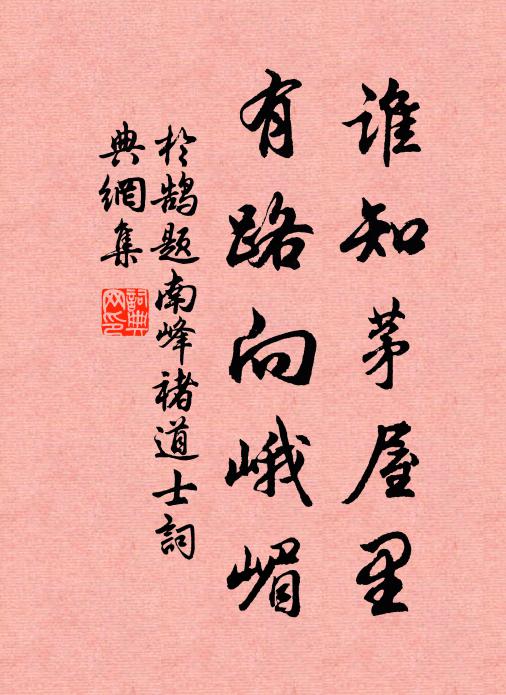 谁知茅屋里
有路向峨嵋
於鹄题南峰褚道士詞
典網集
詞典网印